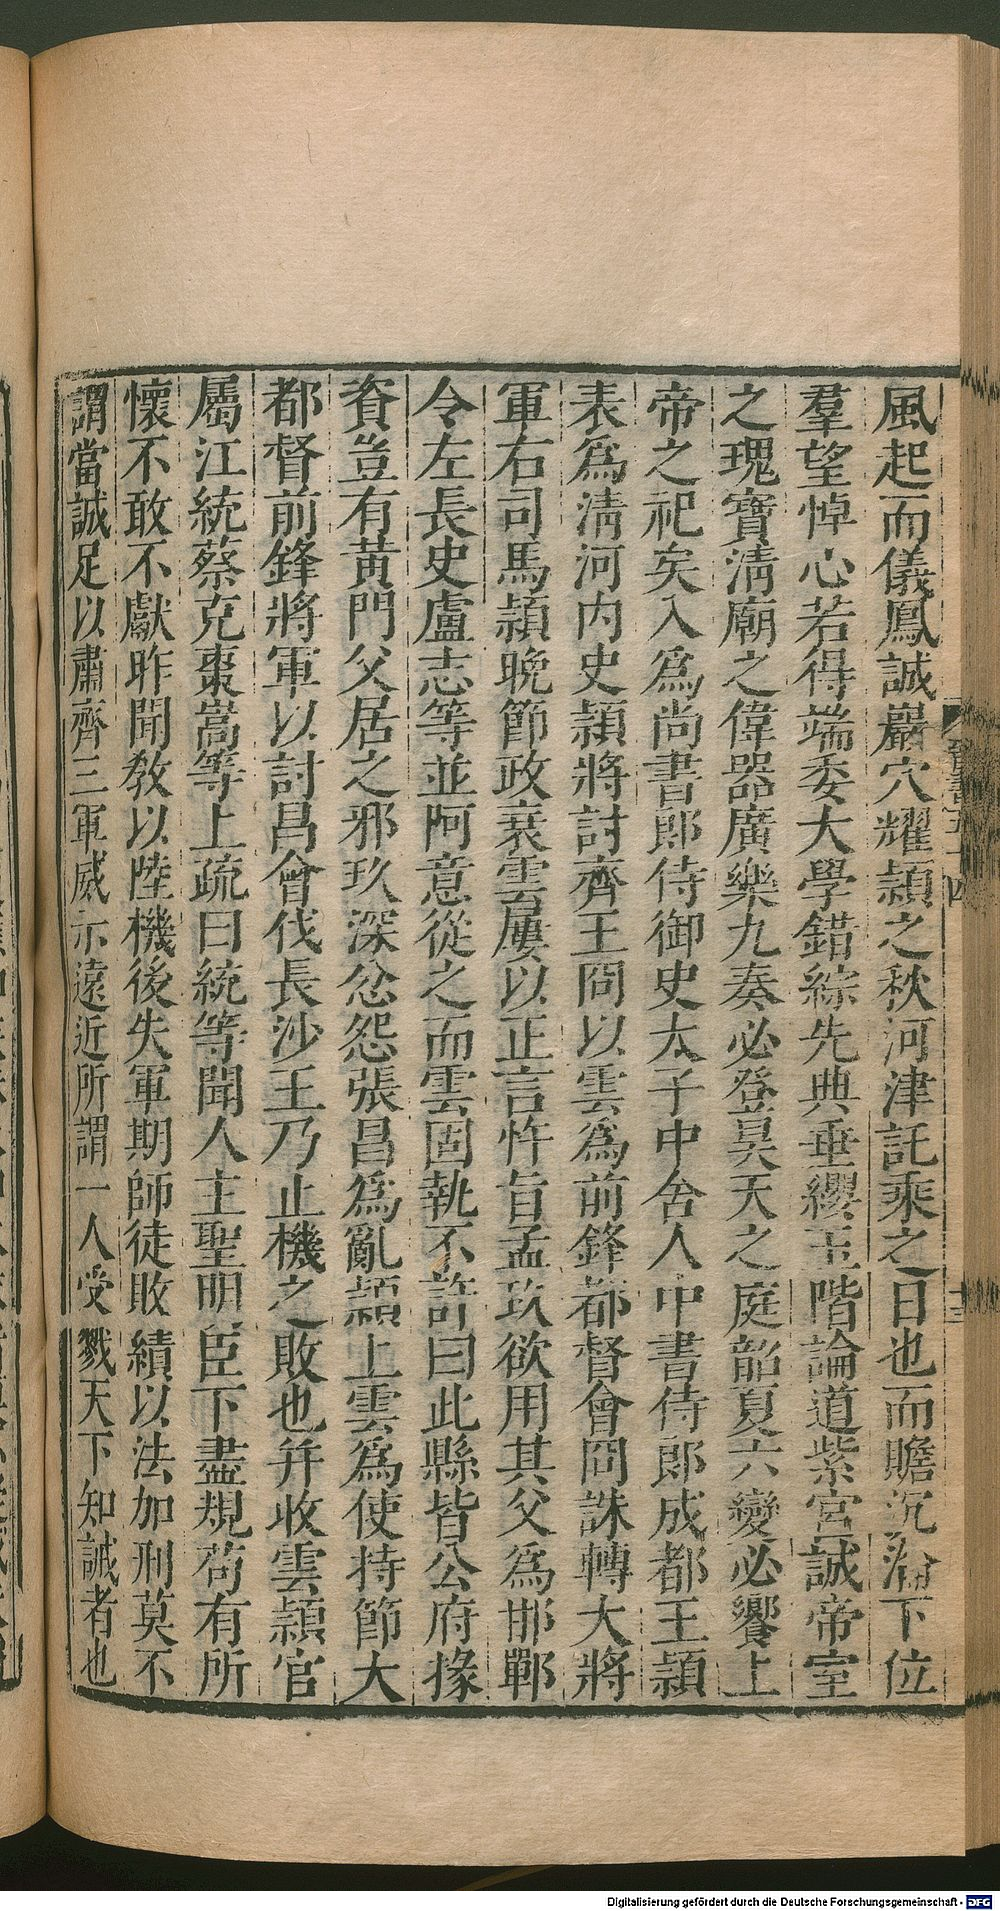 風起而儀鳳誠巖穴耀頴之秋河津託乘之日也而贍沉淪下位
羣望悼心若得端委大學錯綜先典垂纓玉階論道紫宮誠帝室
之瑰寶淸廟之偉器廣樂九奏必登昊天之庭韶夏六變必饗上
帝之祀矣入爲尚書郎侍御史太子中舍人中書侍郎成都王頴
表爲淸河内史頴將討齊王冏以雲爲前鋒都督會冏誅轉大將
軍右司馬頴晩節政衰雲屢以正言忤旨孟玖欲用其父爲邯鄲
令左長史盧志等並阿意從之而雲固執不許曰此縣皆公府掾
資豈有黃門父居之邪玖深忿怨張昌爲亂頴上雲爲使持節大
都督前鋒將軍以討昌會伐長沙王乃止機之敗也并收雲頴官
屬江統蔡克棗嵩等上疏曰統等聞人主聖明臣下盡規苟有所
懷不敢不獻昨聞教以陸機後失軍期師徒敗績以法加刑莫不
謂當誠足以肅齊三軍威示遠近所謂一人受戮天下知誡者也
晉書五十四
十三
Digitalisierung gefördert durch die Deutsche Forschungsgemeinschaft - DFG